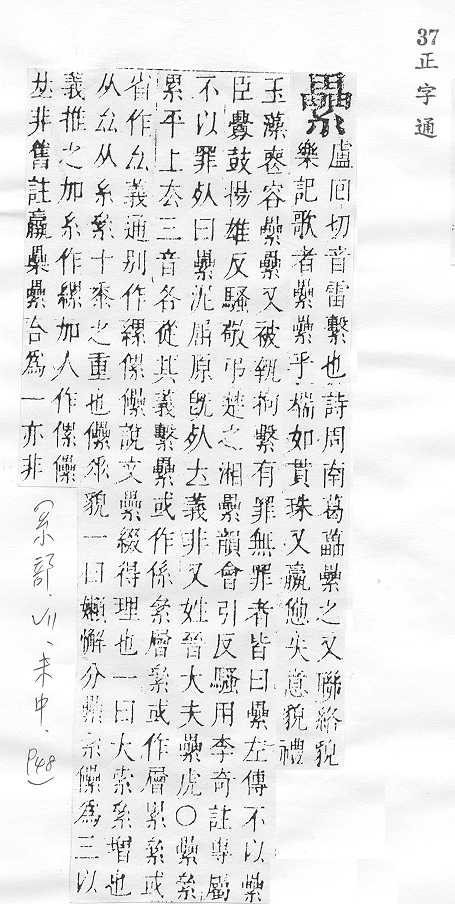 37 正字通
纍
盧回切音雷繫也詩周南葛藟纍之又聯絡貌
樂記歌者纍纍乎端如貫珠又羸憊失意貌禮
玉藻喪容纍纍又被執拘繫有罪無罪者皆曰纍左傳不以纍
臣釁鼓揚雄反騷敬弔楚之湘纍韻會引反騷用李奇註專屬
不以罪死曰纍泥屈原旣死大義非又姓晉大夫纍虎〇纍絫
累平上去三音各從其義繫纍或作係絫層絫或作層累絫或
省作厽義通別作縲傫儽說文纍綴得理也一曰大索絫增也
从厽从糸絫十黍之重也儽垂貌一曰嬾懈分纍絫儽爲三以
義推之加糸作縲加人作傫儽
𠀤非舊註羸纍纍合爲一亦非
(糸部.VII、未中.P48)